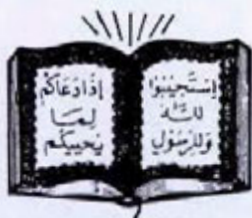 إِسْتَجِيْبُوا
لِلّٰهِ
وَلِلرَّسُوْلِ
إِذَا دَعَاكُمْ
لِمَا
يُحْيِيْكُمْ